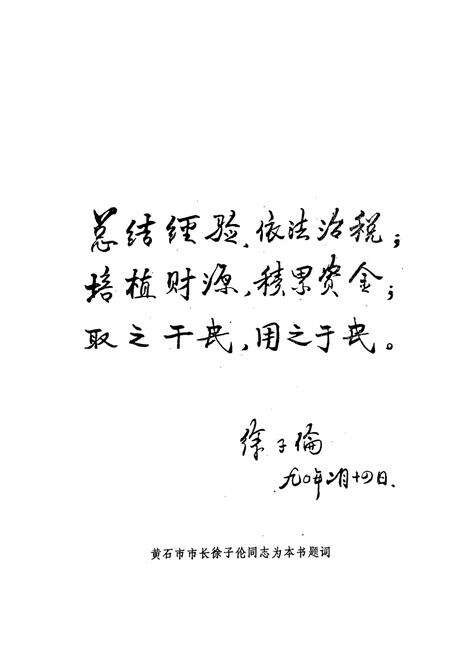 总结经验、依法治税；
培植财源，积累资金；
取之于民，用之于民。
徐子倫
九〇年二月十四日.
黄石市市长徐子伦同志为本书题词